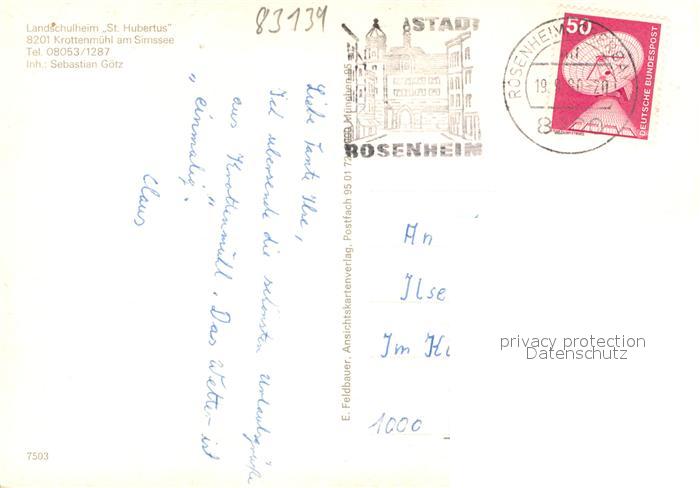 83134
Landschulheim „St. Hubertus"
8201 Krottenmühl am Simssee
Tel. 08053/1287
Inh.: Sebastian Götz
Liebe Tante Ilse,
Ich übersende die schönsten Urlaubsgrüße
aus Krottenmühl. Das Wetter ist
„einmalig".
Claus
7503
E. Feldbauer, Ansichtskartenverlag, Postfach 95 01 72,
STADT
ROSENHEIM
ROSENHEIM
50
DEUTSCHE BUNDESPOST
An
Ilse
Im
1000
privacy protection
Datenschutz